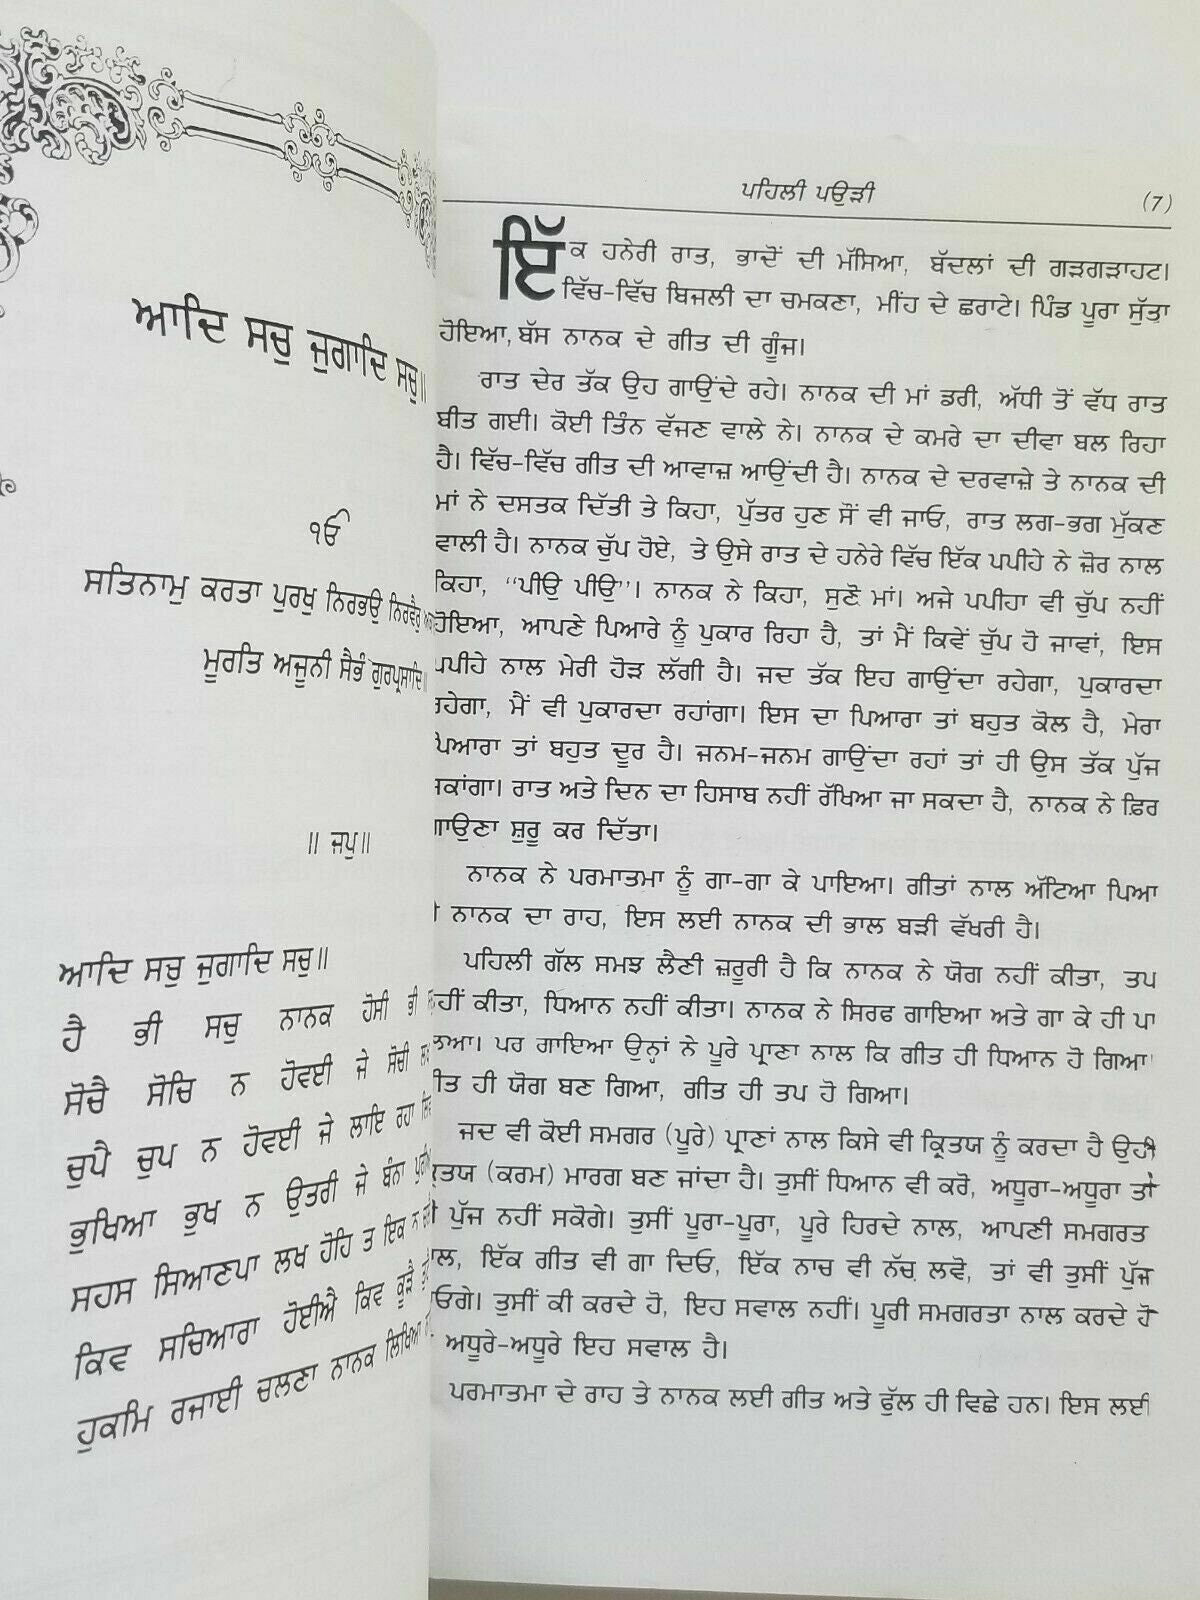 ਆਦਿ ਸਚੁ ਜੁਗਾਦਿ ਸਚੁ॥
ੴ
ਸਤਿਨਾਮੁ ਕਰਤਾ ਪੁਰਖੁ ਨਿਰਭਉ ਨਿਰਵੈਰੁ
ਮੂਰਤਿ ਅਜੂਨੀ ਸੈਭੰ ਗੁਰਪ੍ਰਸਾਦਿ॥
॥ ਜਪੁ॥
ਆਦਿ ਸਚੁ ਜੁਗਾਦਿ ਸਚੁ॥
ਹੈ ਭੀ ਸਚੁ ਨਾਨਕ ਹੋਸੀ ਭੀ
ਸੋਚੈ ਸੋਚਿ ਨ ਹੋਵਈ ਜੇ ਸੋਚੀ
ਚੁਪੈ ਚੁਪ ਨ ਹੋਵਈ ਜੇ ਲਾਇ ਰਹਾ
ਭੁਖਿਆ ਭੁਖ ਨ ਉਤਰੀ ਜੇ ਬੰਨਾ
ਸਹਸ ਸਿਆਣਪਾ ਲਖ ਹੋਹਿ ਤ ਇਕ ਨ
ਕਿਵ ਸਚਿਆਰਾ ਹੋਈਐ ਕਿਵ ਕੂੜੈ
ਹੁਕਮਿ ਰਜਾਈ ਚਲਣਾ ਨਾਨਕ ਲਿਖਿਆ
ਪਹਿਲੀ ਪਉੜੀ (7)
ਇੱਕ ਹਨੇਰੀ ਰਾਤ, ਭਾਦੋਂ ਦੀ ਮੱਸਿਆ, ਬੱਦਲਾਂ ਦੀ ਗੜਗੜਾਹਟ।
ਵਿੱਚ-ਵਿੱਚ ਬਿਜਲੀ ਦਾ ਚਮਕਣਾ, ਮੀਂਹ ਦੇ ਛਰਾਟੇ। ਪਿੰਡ ਪੂਰਾ ਸੁੱਤਾ
ਹੋਇਆ, ਬੱਸ ਨਾਨਕ ਦੇ ਗੀਤ ਦੀ ਗੂੰਜ।
ਰਾਤ ਦੇਰ ਤੱਕ ਉਹ ਗਾਉਂਦੇ ਰਹੇ। ਨਾਨਕ ਦੀ ਮਾਂ ਡਰੀ, ਅੱਧੀ ਤੋਂ ਵੱਧ ਰਾਤ
ਬੀਤ ਗਈ। ਕੋਈ ਤਿੰਨ ਵੱਜਣ ਵਾਲੇ ਨੇ। ਨਾਨਕ ਦੇ ਕਮਰੇ ਦਾ ਦੀਵਾ ਬਲ ਰਿਹਾ
ਹੈ। ਵਿੱਚ-ਵਿੱਚ ਗੀਤ ਦੀ ਆਵਾਜ਼ ਆਉਂਦੀ ਹੈ। ਨਾਨਕ ਦੇ ਦਰਵਾਜ਼ੇ ਤੇ ਨਾਨਕ ਦੀ
ਮਾਂ ਨੇ ਦਸਤਕ ਦਿੱਤੀ ਤੇ ਕਿਹਾ, ਪੁੱਤਰ ਹੁਣ ਸੌਂ ਵੀ ਜਾਓ, ਰਾਤ ਲਗ-ਭਗ ਮੁੱਕਣ
ਵਾਲੀ ਹੈ। ਨਾਨਕ ਚੁੱਪ ਹੋਏ, ਤੇ ਉਸੇ ਰਾਤ ਦੇ ਹਨੇਰੇ ਵਿੱਚ ਇੱਕ ਪਪੀਹੇ ਨੇ ਜ਼ੋਰ ਨਾਲ
ਕਿਹਾ, “ਪੀਉ ਪੀਉ”। ਨਾਨਕ ਨੇ ਕਿਹਾ, ਸੁਣੋ ਮਾਂ। ਅਜੇ ਪਪੀਹਾ ਵੀ ਚੁੱਪ ਨਹੀਂ
ਹੋਇਆ, ਆਪਣੇ ਪਿਆਰੇ ਨੂੰ ਪੁਕਾਰ ਰਿਹਾ ਹੈ, ਤਾਂ ਮੈਂ ਕਿਵੇਂ ਚੁੱਪ ਹੋ ਜਾਵਾਂ, ਇਸ
ਪਪੀਹੇ ਨਾਲ ਮੇਰੀ ਹੋੜ ਲੱਗੀ ਹੈ। ਜਦ ਤੱਕ ਇਹ ਗਾਉਂਦਾ ਰਹੇਗਾ, ਪੁਕਾਰਦਾ
ਰਹੇਗਾ, ਮੈਂ ਵੀ ਪੁਕਾਰਦਾ ਰਹਾਂਗਾ। ਇਸ ਦਾ ਪਿਆਰਾ ਤਾਂ ਬਹੁਤ ਕੋਲ ਹੈ, ਮੇਰਾ
ਪਿਆਰਾ ਤਾਂ ਬਹੁਤ ਦੂਰ ਹੈ। ਜਨਮ-ਜਨਮ ਗਾਉਂਦਾ ਰਹਾਂ ਤਾਂ ਹੀ ਉਸ ਤੱਕ ਪੁੱਜ
ਸਕਾਂਗਾ। ਰਾਤ ਅਤੇ ਦਿਨ ਦਾ ਹਿਸਾਬ ਨਹੀਂ ਰੱਖਿਆ ਜਾ ਸਕਦਾ ਹੈ, ਨਾਨਕ ਨੇ ਫ਼ਿਰ
ਗਾਉਣਾ ਸ਼ੁਰੂ ਕਰ ਦਿੱਤਾ।
ਨਾਨਕ ਨੇ ਪਰਮਾਤਮਾ ਨੂੰ ਗਾ-ਗਾ ਕੇ ਪਾਇਆ। ਗੀਤਾਂ ਨਾਲ ਅੱਟਿਆ ਪਿਆ
ਨਾਨਕ ਦਾ ਰਾਹ, ਇਸ ਲਈ ਨਾਨਕ ਦੀ ਭਾਲ ਬੜੀ ਵੱਖਰੀ ਹੈ।
ਪਹਿਲੀ ਗੱਲ ਸਮਝ ਲੈਣੀ ਜ਼ਰੂਰੀ ਹੈ ਕਿ ਨਾਨਕ ਨੇ ਯੋਗ ਨਹੀਂ ਕੀਤਾ, ਤਪ
ਨਹੀਂ ਕੀਤਾ, ਧਿਆਨ ਨਹੀਂ ਕੀਤਾ। ਨਾਨਕ ਨੇ ਸਿਰਫ ਗਾਇਆ ਅਤੇ ਗਾ ਕੇ ਹੀ ਪਾ
ਲਿਆ। ਪਰ ਗਾਇਆ ਉਨ੍ਹਾਂ ਨੇ ਪੂਰੇ ਪ੍ਰਾਣਾ ਨਾਲ ਕਿ ਗੀਤ ਹੀ ਧਿਆਨ ਹੋ ਗਿਆ
ਗੀਤ ਹੀ ਯੋਗ ਬਣ ਗਿਆ, ਗੀਤ ਹੀ ਤਪ ਹੋ ਗਿਆ।
ਜਦ ਵੀ ਕੋਈ ਸਮਗਰ (ਪੂਰੇ) ਪ੍ਰਾਣਾਂ ਨਾਲ ਕਿਸੇ ਵੀ ਕ੍ਰਿਤਯ ਨੂੰ ਕਰਦਾ ਹੈ ਉਹੀ
ਕ੍ਰਿਤਯ (ਕਰਮ) ਮਾਰਗ ਬਣ ਜਾਂਦਾ ਹੈ। ਤੁਸੀਂ ਧਿਆਨ ਵੀ ਕਰੋ, ਅਧੂਰਾ-ਅਧੂਰਾ ਤਾਂ
ਪੁੱਜ ਨਹੀਂ ਸਕੋਗੇ। ਤੁਸੀਂ ਪੂਰਾ-ਪੂਰਾ, ਪੂਰੇ ਹਿਰਦੇ ਨਾਲ, ਆਪਣੀ ਸਮਗਰਤ
ਨਾਲ, ਇੱਕ ਗੀਤ ਵੀ ਗਾ ਦਿਓ, ਇੱਕ ਨਾਚ ਵੀ ਨੱਚ ਲਵੋ, ਤਾਂ ਵੀ ਤੁਸੀਂ ਪੁੱਜ
ਜਾਓਗੇ। ਤੁਸੀਂ ਕੀ ਕਰਦੇ ਹੋ, ਇਹ ਸਵਾਲ ਨਹੀਂ। ਪੂਰੀ ਸਮਗਰਤਾ ਨਾਲ ਕਰਦੇ ਹੋ
ਅਧੂਰੇ-ਅਧੂਰੇ ਇਹ ਸਵਾਲ ਹੈ।
ਪਰਮਾਤਮਾ ਦੇ ਰਾਹ ਤੇ ਨਾਨਕ ਲਈ ਗੀਤ ਅਤੇ ਫੁੱਲ ਹੀ ਵਿਛੇ ਹਨ। ਇਸ ਲਈ